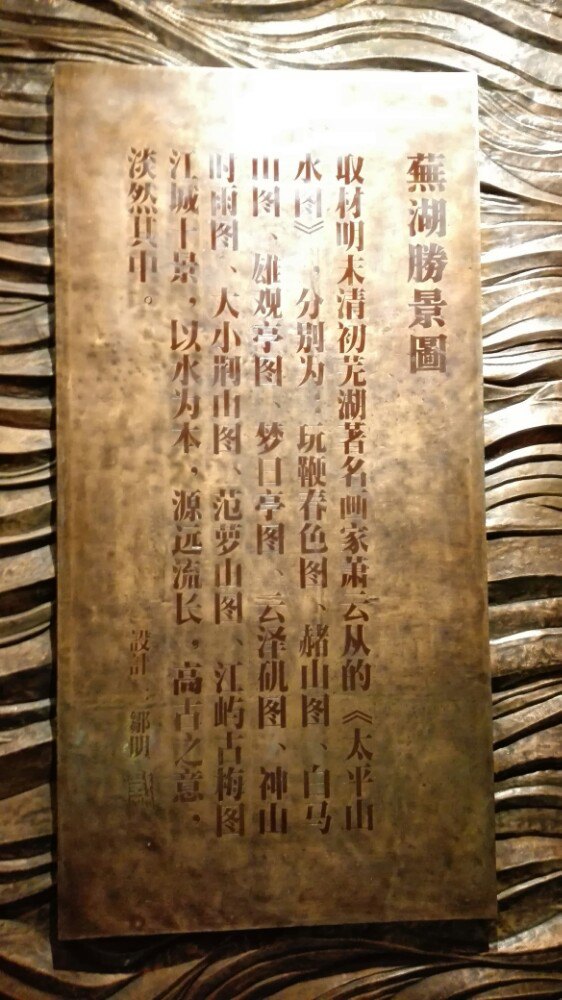 蕪湖勝景圖
取材明末清初芜湖著名画家萧云从的《太平山
水图》，分别为：玩鞭春色图、赭山图、白马
山图、雄观亭图、梦日亭图、云泽矶图、神山
时雨图、大小荆山图、范萝山图、江屿古梅图
江城十景，以水为本，源远流长，高古之意，
淡然其中。
設計：鄒明